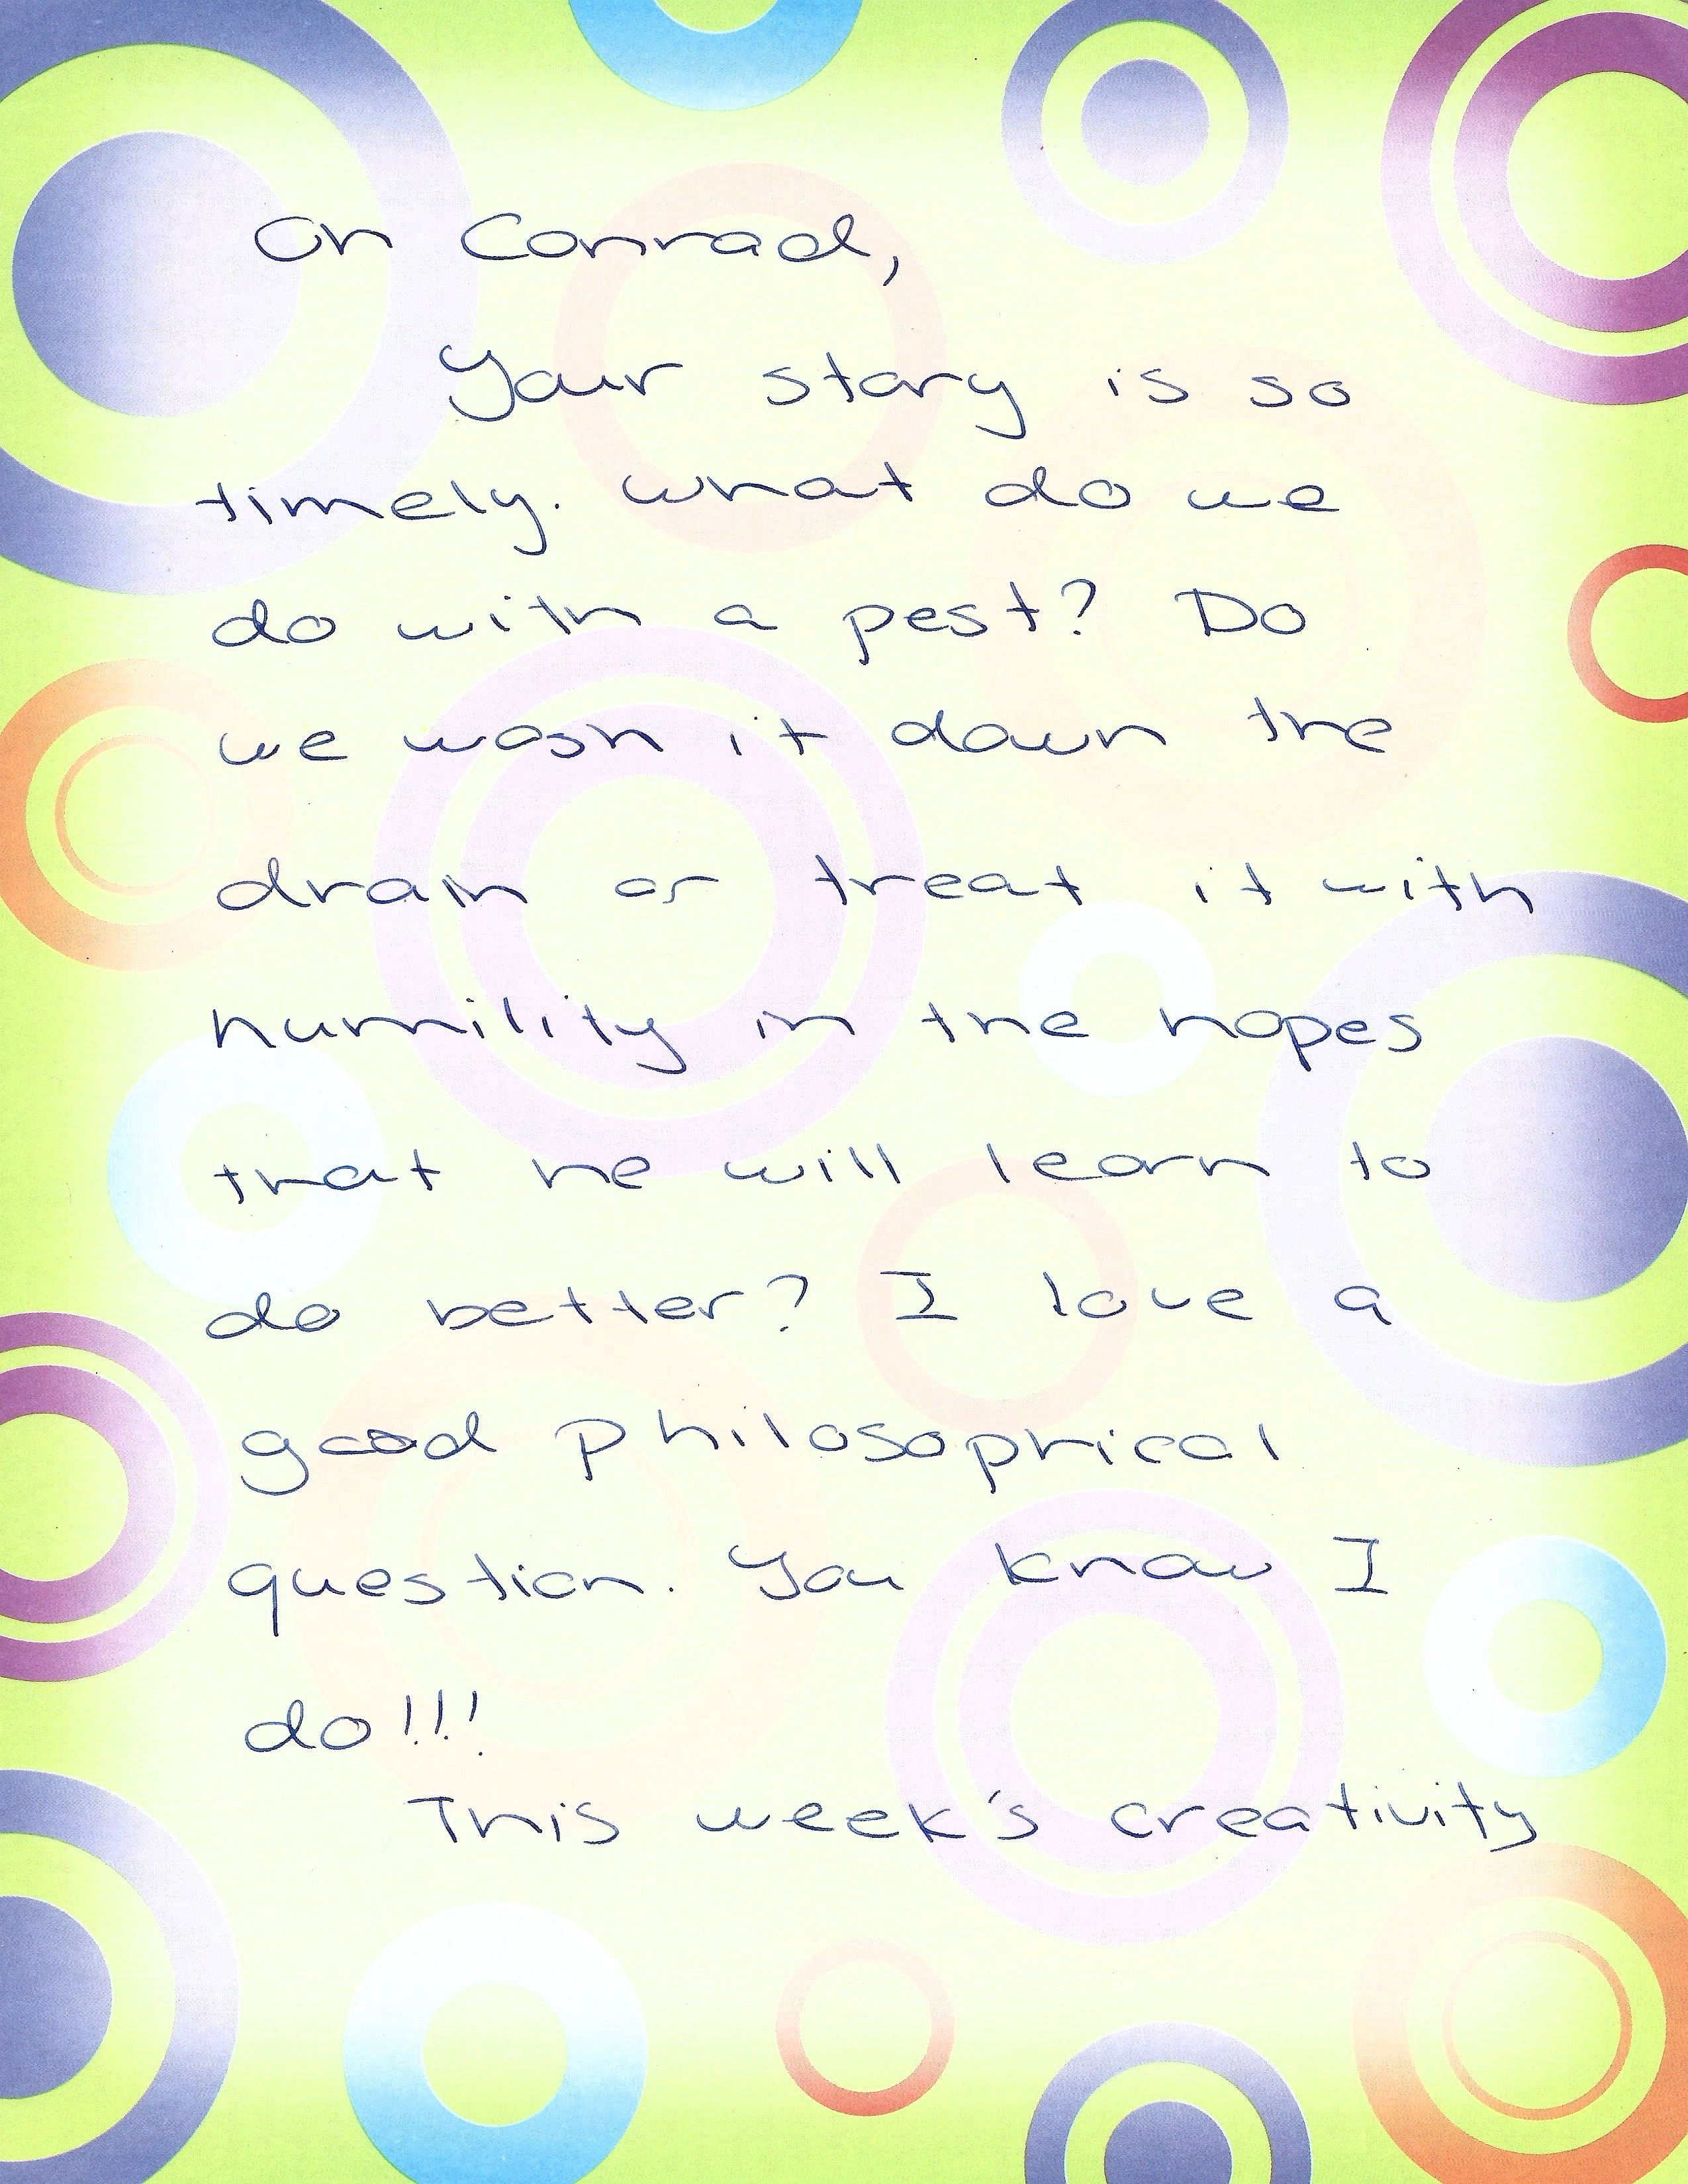 Oh Conrad,
Your story is so
timely. What do we
do with a pest? Do
we wash it down the
drain or treat it with
humility in the hopes
that he will learn to
do better? I love a
good philosophical
question. You know I
do!!!
This week's creativity